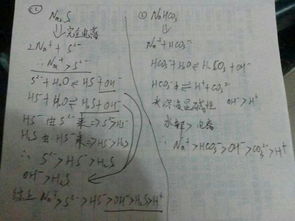 Na₂S
⇓完全电离
2Na⁺ + S²⁻
∴ Na⁺>S²⁻
S²⁻+H₂O⇌HS⁻+OH⁻
HS⁻+H₂O⇌H₂S+OH⁻
HS⁻由S²⁻来⇒S²⁻>HS⁻
H₂S由HS⁻来⇒HS⁻>H₂S
∴ S²⁻>HS⁻>H₂S
OH⁻>H₂S
综上 Na⁺>S²⁻>HS⁻>OH⁻>H₂S>H⁺
NaHCO₃
⇓
Na⁺+HCO₃⁻
HCO₃⁻+H₂O⇌H₂CO₃+OH⁻
HCO₃⁻⇌H⁺+CO₃²⁻
碱性 OH⁻>H⁺
水解>电离
∴ Na⁺>HCO₃⁻>OH⁻>CO₃²⁻>H⁺